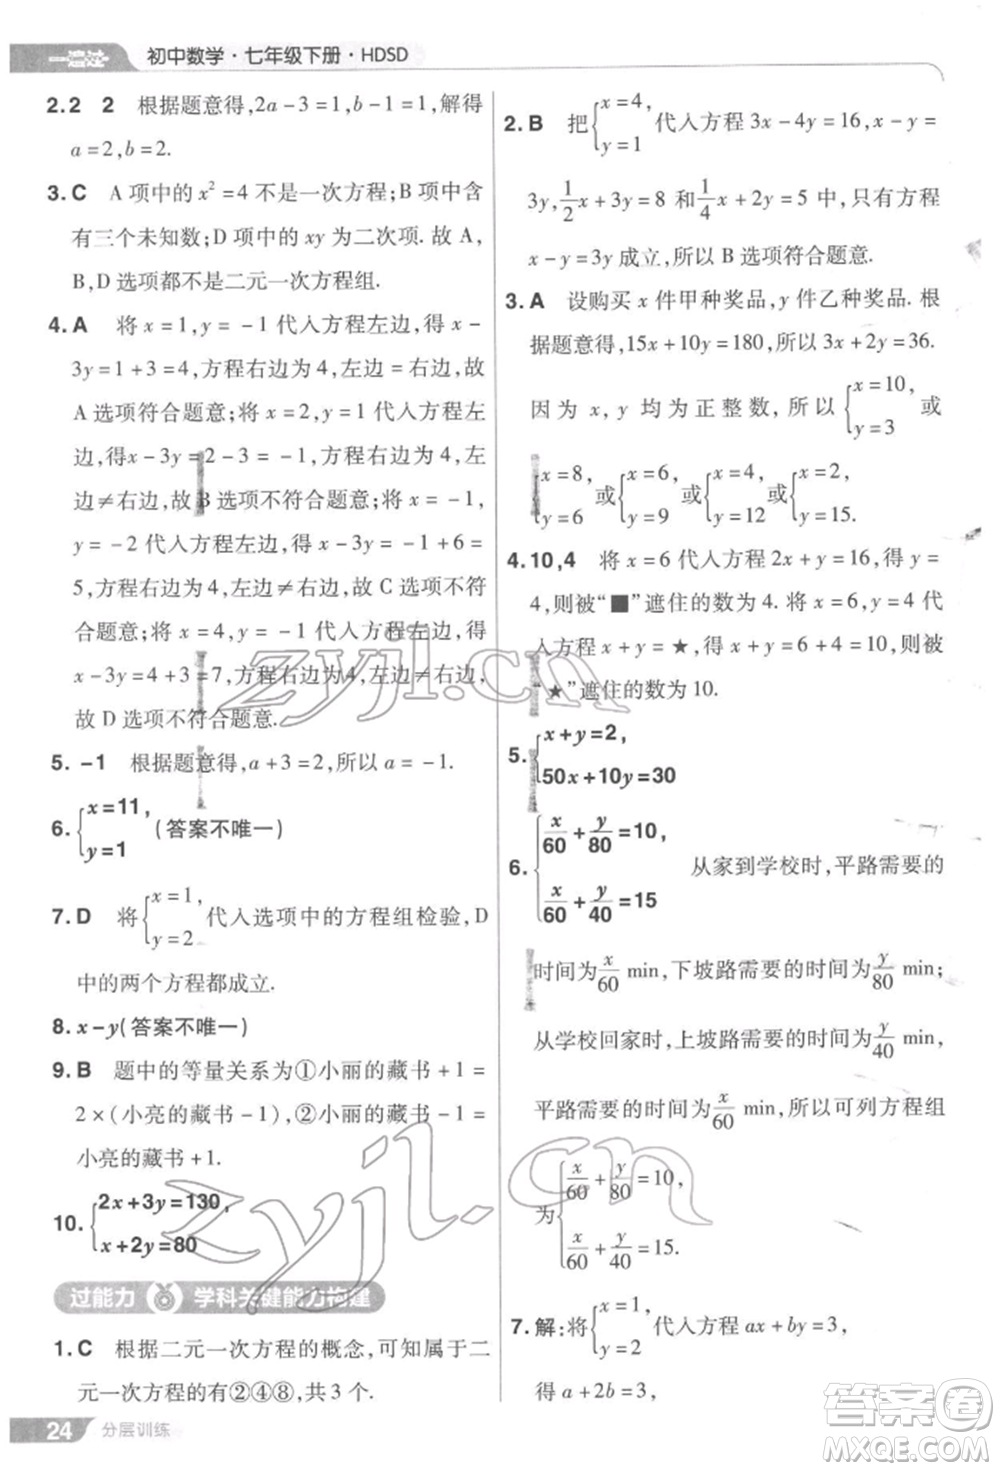 一遍过 初中数学·七年级下册·HDSD
2.2 2 根据题意得,2a-3=1,b-1=1,解得
a=2,b=2.
3.C A 项中的 x²=4 不是一次方程;B 项中含
有三个未知数;D 项中的 xy 为二次项.故 A,
B,D 选项都不是二元一次方程组.
4.A 将 x=1,y=-1 代入方程左边,得 x-
3y=1+3=4,方程右边为4,左边=右边,故
A 选项符合题意;将 x=2,y=1 代入方程左
边,得x-3y=2-3=-1,方程右边为4,左
边≠右边,故 B 选项不符合题意;将 x=-1,
y=-2 代入方程左边,得 x-3y=-1+6=
5,方程右边为4,左边≠右边,故 C 选项不符
合题意;将 x=4,y=-1 代入方程左边,得
x-3y=4+3=7,方程右边为4,左边≠右边,
故 D 选项不符合题意.
5.-1 根据题意得,a+3=2,所以 a=-1.
6.{x=11,
y=1 (答案不唯一)
7.D 将{x=1,
y=2 代入选项中的方程组检验,D
中的两个方程都成立.
8.x-y(答案不唯一)
9.B 题中的等量关系为①小丽的藏书+1=
2×(小亮的藏书-1),②小丽的藏书-1=
小亮的藏书+1.
10.{2x+3y=130,
x+2y=80
过能力 学科关键能力构建
1.C 根据二元一次方程的概念,可知属于二
元一次方程的有②④⑧,共3个.
24 分层训练
2.B 把{x=4,
y=1 代入方程 3x-4y=16,x-y=
3y,1/2x+3y=8 和1/4x+2y=5 中,只有方程
x-y=3y 成立,所以 B 选项符合题意.
3.A 设购买 x 件甲种奖品,y 件乙种奖品.根
据题意得,15x+10y=180,所以3x+2y=36.
因为 x,y 均为正整数,所以{x=10,
y=3 或
{x=8,
y=6 或{x=6,
y=9 或{x=4,
y=12 或{x=2,
y=15.
4.10,4 将 x=6 代入方程 2x+y=16,得 y=
4,则被“■”遮住的数为4.将 x=6,y=4 代
入方程 x+y=★,得 x+y=6+4=10,则被
“★”遮住的数为10.
5.{x+y=2,
50x+10y=30
6.{x/60+y/80=10,
x/60+y/40=15 从家到学校时,平路需要的
时间为x/60 min,下坡路需要的时间为y/80 min;
从学校回家时,上坡路需要的时间为y/40 min,
平路需要的时间为x/60 min,所以可列方程组
为{x/60+y/80=10,
x/60+y/40=15.
7.解:将{x=1,
y=2 代入方程 ax+by=3,
得 a+2b=3,
zyjl.cn
zyjl.cn
答案圈
MXQE.COM